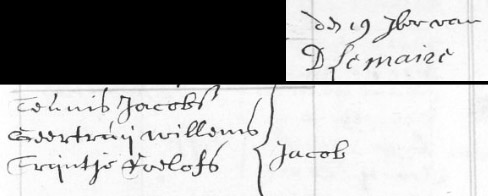 den 19 Jber van
D Lemaire
Teunis Jacobs
Geertruij Willems
Trijntje Roelofs
Jacob